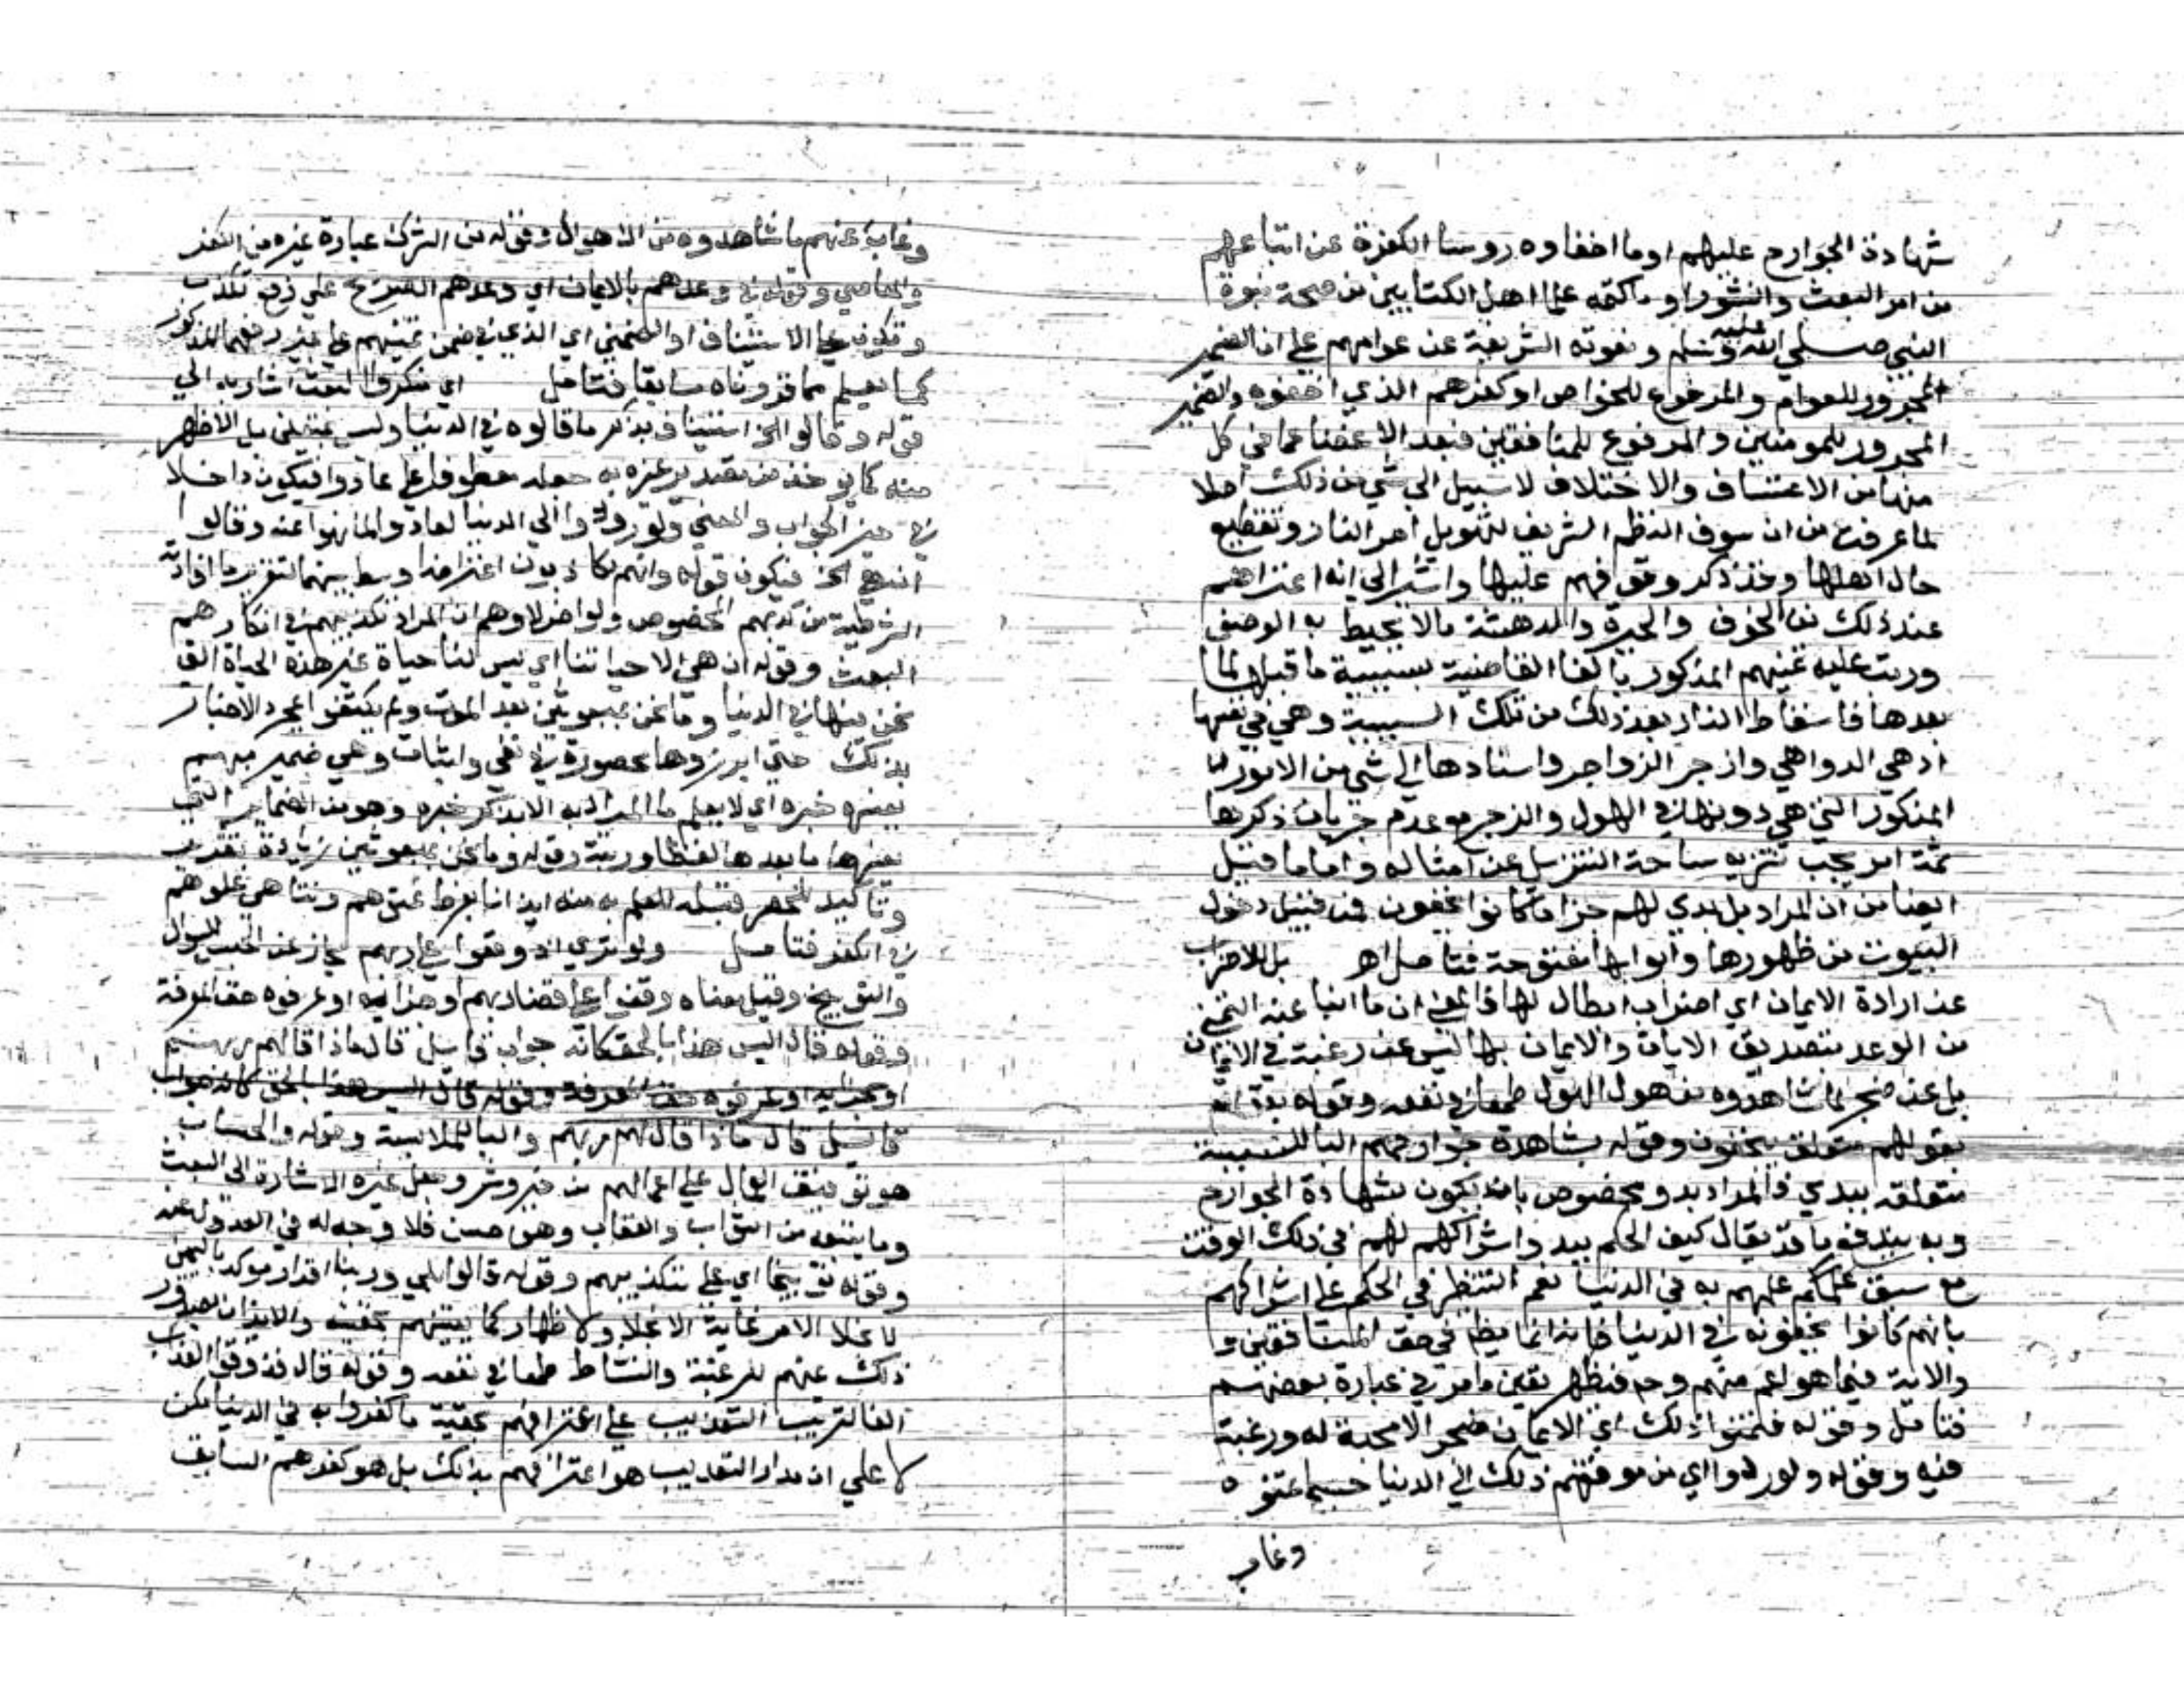 شهادة الجوارح عليهم او ما اخفاوه روسا الكفرة عن اتباعهم
من امر البعث والنشور او ما كتمه علما اهل الكتابين من صحة نبوة
النبي صلي الله عليه وسلم ونعوته الشريفة عن عوامهم علي ان الضمير
المجرور للعوام والمرفوع للخواص او كفرهم الذي اخفوه والضمير
المجرور للمومنين والمرفوع للمنافقين فبعد الاغضا عما في كل
منها من الاعتساف والاختلاف لا سبيل الي شي من ذلك اصلا
لما عرفت من ان سوق النظم الشريف لتهويل امر النار وتفظيع
حال اهلها وقد ذكر وقوفهم عليها واشير الي انه اعتراهم
عند ذلك من الخوف والحيرة والدهشة ما لا يحيط به الوصف
ورتب عليه تمنيهم المذكور بالفا القاضية بسببية ما قبلها لما
بعدها فاسقاط النار بعد ذلك من تلك السببية وهي في نفسها
ادهي الدواهي وازجر الزواجر واسنادها الي شي من الامور
المذكور التي هي دونها في الهول والزجر مع عدم جريان ذكرها
ثمة امر يجب تنزيه ساحة التنزيل عن امثاله واما ما قيل
ايضا من ان المراد بل بدي لهم جزا ما كانوا يخفون فمن قبيل دخول
البيوت من ظهورها وابوابها مفتوحة فتامل اهـ بل للاضراب
عن ارادة الايمان اي اضراب ابطال لها فالمعني ان ما انبا عنه التمني
من الوعد بتصديق الايات والايمان بها ليس عن رغبة في الايمان
بل عن ضجر لما شاهدوه من هول الهول طمعا في نفعه وقوله
بقولهم متعلق بيخفون وقوله بشاهدة جوارحهم البا للسببية
متعلقة ببدي فالمراد بدو مخصوص بان يكون بشهادة الجوارح
وبه يندفع ما قد يقال كيف الحكم ببدو اشراكهم لهم في ذلك الوقت
مع سبق علمهم به في الدنيا نعم النظر في الحكم علي اشراكهم
بانهم كانوا يخفونه في الدنيا فانه انما يظهر في حق المنافقين
والاية فيما هو اعم منهم وح فيظهر تعين ما مر في عبارة بعضهم
فتامل وقوله فتمنوا ذلك اي الايمان ضجرا لا محبة له ورغبة
فيه وقوله ولو ردوا اي من موقفهم ذلك الي الدنيا حسبما تمنوه
وغاب
وغاب عنهم ما شاهدوه من الاهوال وقوله من الشرك عبارة غيره من الكفر
والمعاصي وقوله في وعدهم بالايمان اي وعدهم الصريح علي رفع نكذب
ونكون علي الاستيناف او الضمني اي الذي في ضمن تمنيهم علي غير رفعهما المذكور
كما تعلم مما قررناه سابقا فتامل اي منكروا البعث اشار به الي
قوله وقالوا الخ استيناف بذكر ما قالوه في الدنيا وليس بمتعين بل الاظهر
منه كما يوخذ من تقدير غيره به جعله معطوفا علي عادوا فيكون داخلا
في حيز الجواب والمعني ولو ردوا الي الدنيا لعادوا لما نهوا عنه وقالوا
ان هي الخ فيكون قوله وانهم لكاذبون اعتراضا وسط بينهما لتقرير ما افادته
الشرطية من كذبهم المخصوص ولو اخر لاوهم ان المراد تكذيبهم في انكارهم
البعث وقوله ان هي الا حياتنا اي ليس لنا حياة غير هذه الحياة التي
نحن فيها في الدنيا وما نحن بمبعوثين بعد الموت ولم يكتفوا بمجرد الاخبار
بذلك حتي ابرزوها محصورة في نفي واثبات وهي ضمير مبهم
يفسره خبره اي لا يعلم ما المراد به الا بذكر خبره وهو من الضماير التي
يفسرها ما بعدها لفظا وربتة وقوله وما نحن بمبعوثين زيادة تقرير
وتاكيد للحصر قبله للعلم به منه ايذانا بفرط عتوهم وتناهي غلوهم
في الكفر فتامل ولو تري اذ وقفوا علي ربهم مجاز عن الحبس للسوال
والتوبيخ وقيل معناه وقفوا علي قضا ربهم او جزايه او عرفوه حق المعرفة
وقوله قال اليس هذا بالحق كانه جواب قايل قال ماذا قال لهم ربهم
او جزايه او عرفوه حق المعرفة وقوله قال اليس هذا بالحق كانه جواب
قايل قال ماذا قال لهم ربهم والبا للملابسة وقوله والحساب
هو توقيف العباد علي اعمالهم من خير وشر وجعل غيره الاشارة الي البعث
وما يتبعه من الثواب والعقاب وهو حسن فلا وجه له في العدول عنه
وقوله توبيخا اي علي تكذيبهم وقوله قالوا بلي وربنا اقرار موكد باليمين
لانجلا الامر غاية الانجلا ولاظهار كمال يقينهم بحقيته والايذان بصدور
ذلك عنهم للرغبة والنشاط طمعا في نفعه وقوله قال فذوقوا العذاب
الفا لترتيب التعذيب علي اعترافهم بحقية ما كفروا به في الدنيا لكن
لا علي ان مدار التعذيب هو اعترافهم بذلك بل هو كفرهم السابق